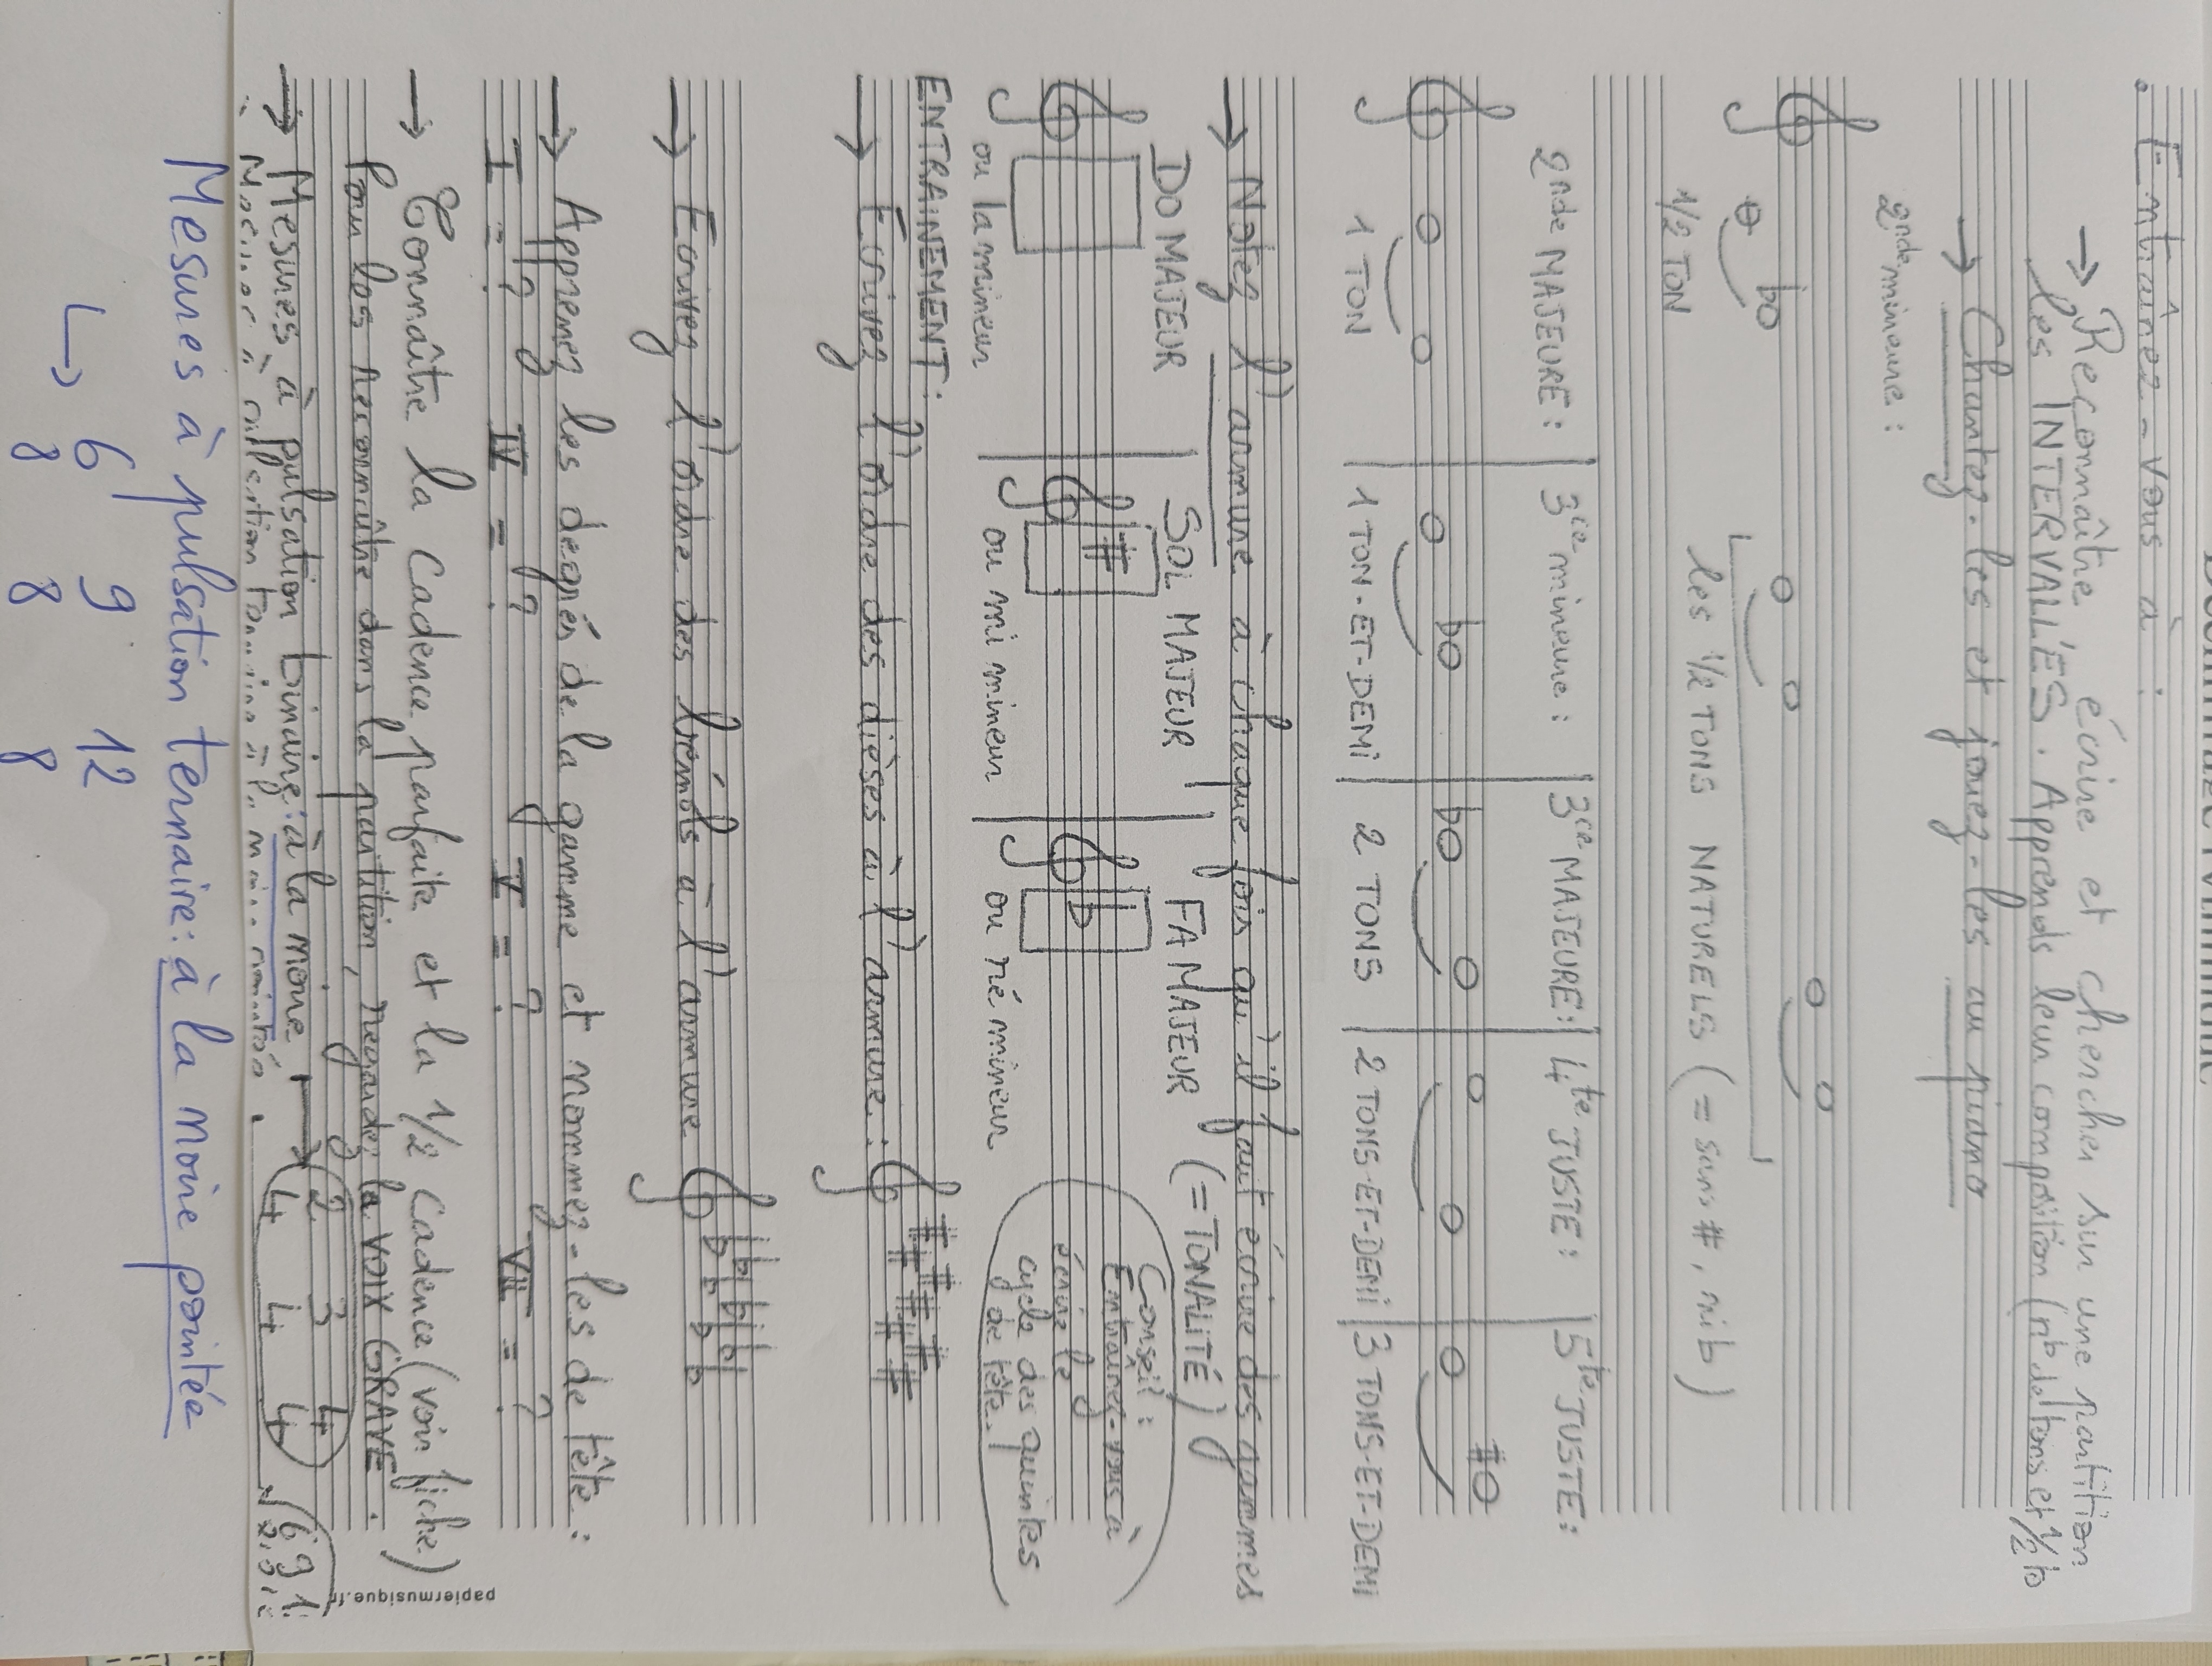 . Entraînez-vous à :
→ Reconnaître, écrire et chercher sur une partition
les INTERVALLES. Apprends leur composition (nb de tons et 1/2 to
→ Chantez-les et jouez-les au piano
2nde mineure :
1/2 TON
les 1/2 TONS NATURELS (= sans #, ni b)
2nde MAJEURE : 3ce mineure : 3ce MAJEURE : 4te JUSTE : 5te JUSTE :
1 TON 1 TON-ET-DEMI 2 TONS 2 TONS-ET-DEMI 3 TONS-ET-DEMI
→ Notez l'armure à chaque fois qu'il faut écrire des gammes
DO MAJEUR SOL MAJEUR FA MAJEUR (= TONALITÉ)
ou la mineur ou mi mineur ou ré mineur
Conseil :
Entraînez-vous à
écrire le
cycle des quintes
de tête.
ENTRAINEMENT :
→ Ecrivez l'ordre des dièses à l'armure :
→ Ecrivez l'ordre des bémols à l'armure
→ Apprenez les degrés de la gamme et nommez-les de tête :
I = ? IV = ? V = ? VII = ?
→ Connaître la Cadence parfaite et la 1/2 Cadence (voir fiche)
Pour los reconnaître dans la partition, regardez la VOIX GRAVE.
→ Mesures à pulsation binaire : à la noire → 2 3 4
4 4 4
Mesures à pulsation ternaire : à la noire pointée
↳ 6 9 12
8 8 8
papiermusique.fr